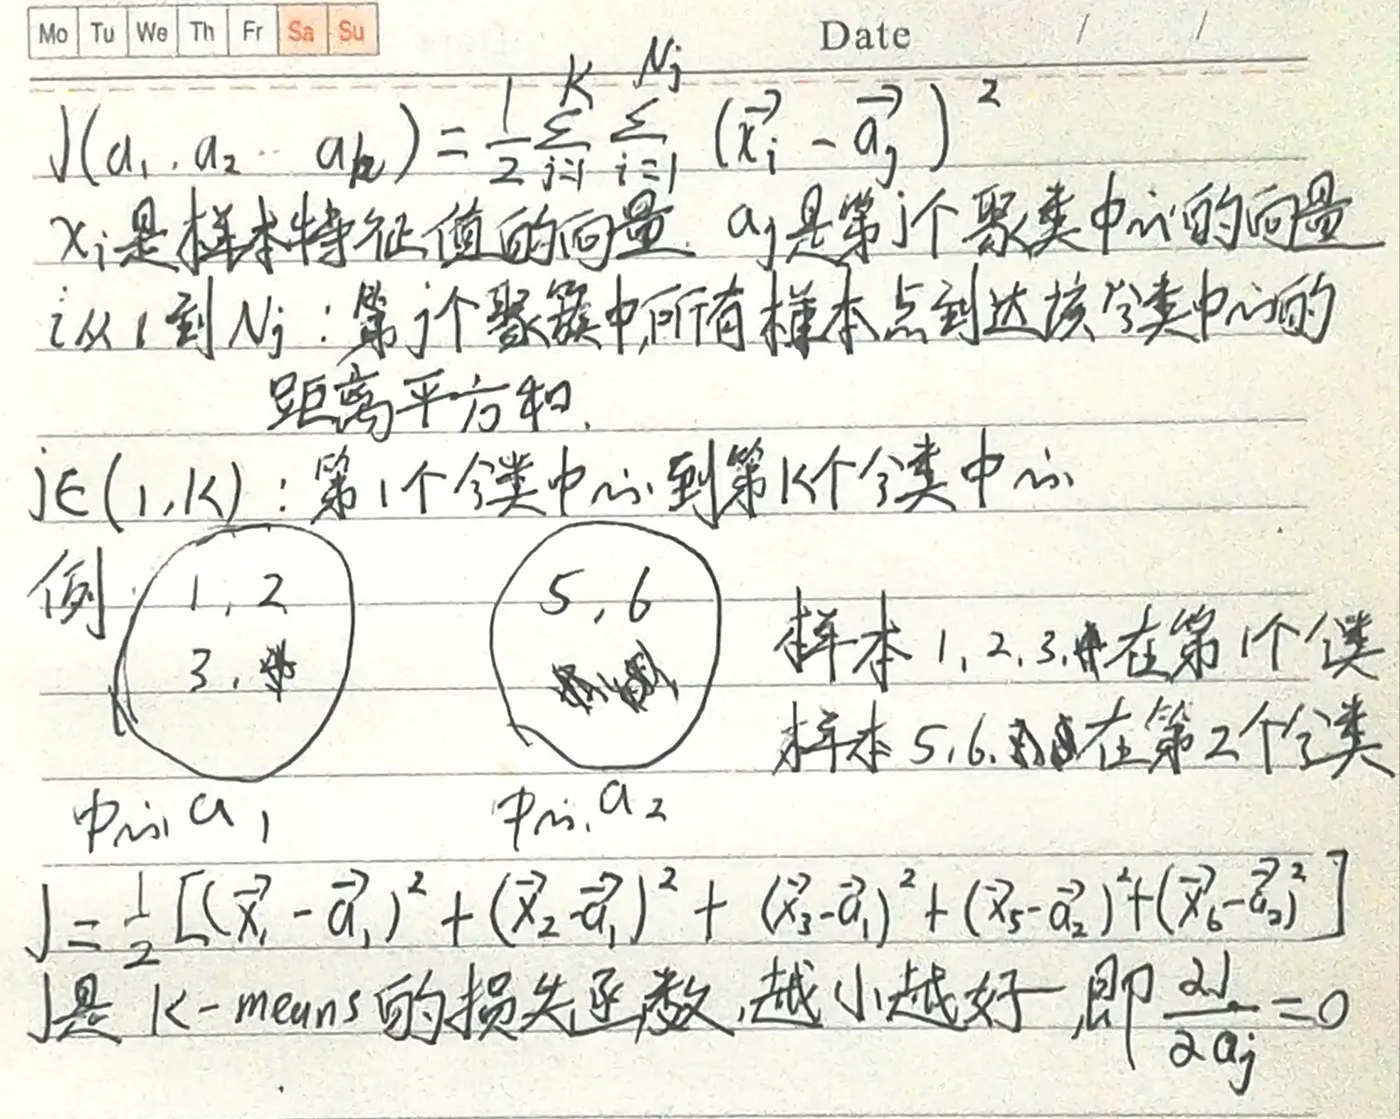 Mo Tu We Th Fr Sa Su Date / /
J(a₁, a₂ … aₖ) = 1/2 Σ_{j=1}^{K} Σ_{i=1}^{Nj} (x⃗ᵢ - a⃗ⱼ)²
xᵢ是样本特征值的向量. aⱼ是第j个聚类中心的向量
i从1到Nj:第j个聚簇中,所有样本点到达该分类中心的
距离平方和.
j∈(1,K):第1个分类中心到第K个分类中心
例
1, 2
3,
5, 6
样本1,2,3,在第1个分类
样本5,6,在第2个分类
中心a₁ 中心a₂
J = 1/2 [(x⃗₁ - a⃗₁)² + (x⃗₂ - a⃗₁)² + (x⃗₃ - a⃗₁)² + (x⃗₅ - a⃗₂)² + (x⃗₆ - a⃗₂)²]
J是K-means的损失函数,越小越好,即 ∂J/∂aⱼ = 0